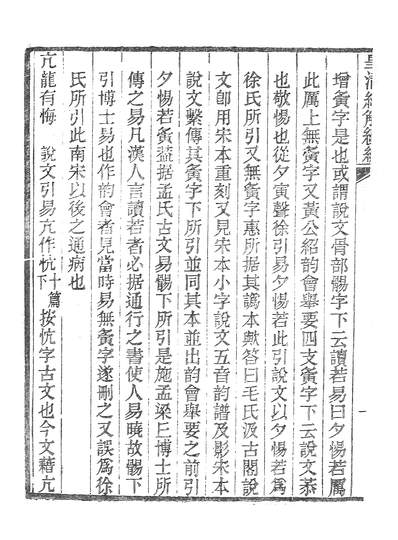 皇清經解續編
一
增夤字是也或謂說文骨部䯜字下云讀若易曰夕惕若厲
此厲上無夤字又黃公紹韵會舉要四支夤字下云說文恭
也敬惕也從夕寅聲徐引易夕惕若此引說文以夕惕若爲
徐氏所引又無夤字惠所据其譌本歟答曰毛氏汲古閣說
文卽用宋本重刻又見宋本小字說文五音韵譜及影宋本
說文繫傳其夤字下所引並同其本並出韵會舉要之前引
夕惕若夤葢据孟氏古文易䯜下所引是施孟梁丘博士所
傳之易凡漢人言讀若者必据通行之書使人易曉故䯜下
引博士易也作韵會者見當時易無夤字遂刪之又誤爲徐
氏所引此南宋以後之通病也
亢龍有悔 說文引易亢作忼十篇下按忼字古文也今文藉亢